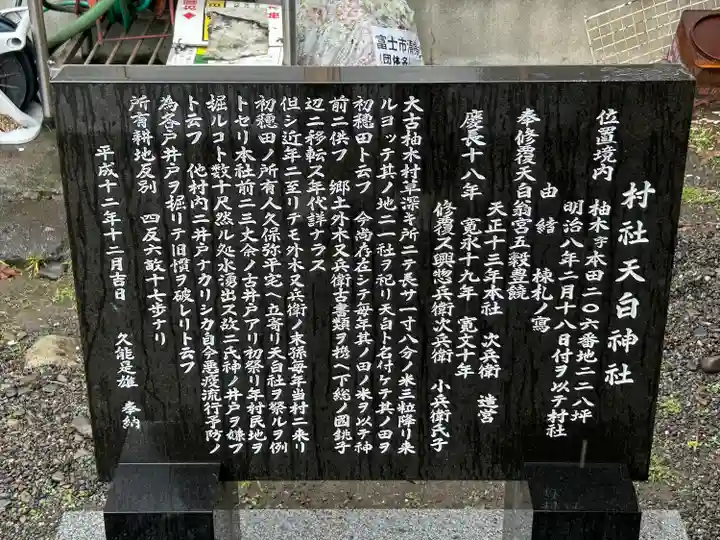 村社天白神社
位置境内 柚木寺本田二〇六番地二二八坪
明治八年二月十八日付ヲ以テ村社
由結 棟札ノ寫
奉修覆天白翁宮五穀豊饒
天正十三年本社 次兵衛 造宮
慶長十八年 寛永十九年 寛文十年
修覆ス與惣兵衛次兵衛 小兵衛氏子
大古柚木村草深キ所ニテ長サ一寸八分ノ米三粒降リ来
ルヨッテ其ノ地ニ一社ヲ祀リ天白ト名付ケテ其ノ田ヲ
初穂田ト云フ 今尚存在シテ毎年其ノ田ノ米ヲ以テ神
前ニ供フ 郷士外木又兵衛古書類ヲ携ヘ下総ノ國銚子
辺ニ移転ス年代詳ナラス
但シ近年ニ至リテモ外木又兵衛ノ末孫毎年当村ニ来リ
初穂田ノ所有人久保弥平宅ヘ立寄リ天白社ヲ祭ルヲ例
トセリ本社前ニ三丈余ノ古井戸アリ初祭リ年村民地ヲ
堀ルコト数十尺然ル処水湧出ス故ニ氏神ノ井戸ヲ嫌フ
ト云フ 他村内ニ井戸ナカリシカ自今悪疫流行予防ノ
為各戸井戸ヲ掘リテ旧慣ヲ破レリト云フ
所有耕地反別 四反六畝十七歩ナリ
平成十二年十二月吉日 久能是雄 奉納
富士市
(団体名